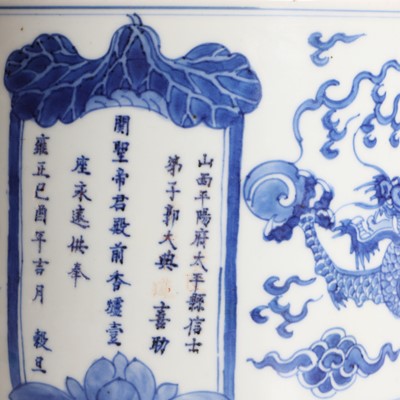 山西平陽府太平縣信士
弟子郭大典 喜助
關聖帝君殿前香爐壹
座永遠供奉
雍正己酉年吉月 穀旦